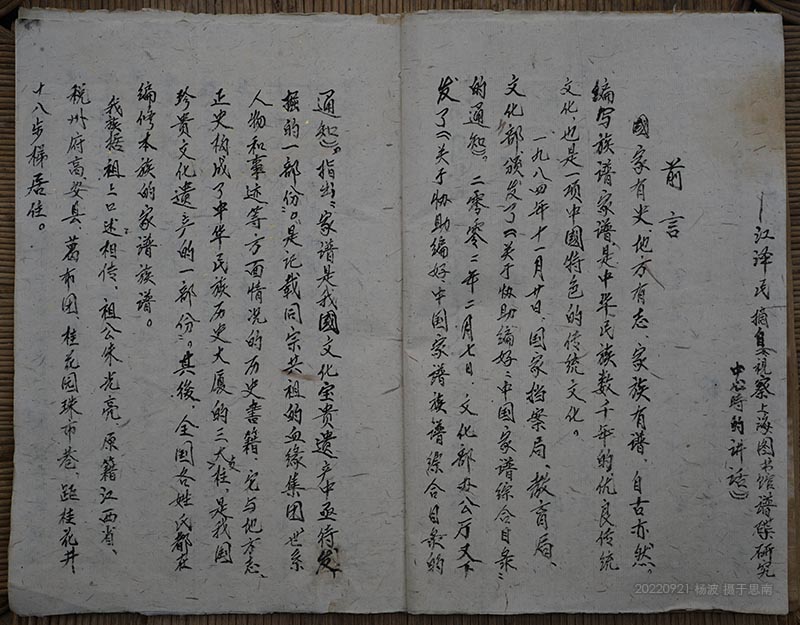 ——江泽民摘自《视察上海图书馆谱牒研究
中心时的讲话》
前言
國家有史、地方有志、家族有谱、自古亦然。
编写族谱家谱、是中华民族数千年的优良传统
文化、也是一项中國特色的传统文化。
一九八四年十一月廿日、国家档案局、教育局、
文化部颁发了《关于协助编好:中国家谱综合目录:
的通知》。二零零二年二月七日、文化部办公厅又下
发了《关于协助编好中国家谱族谱综合目录的
通知》。指出:家谱是我國文化宝贵遗产中亟待发
掘的一部份。是记载同宗共祖的血缘集团世系
人物和事迹等方面情况的历史书籍、它与地方志、
正史构成了中华民族历史大厦的三大支柱、是我国
珍贵文化遗产的一部份。其後、全国各姓氏都在
编修本族的家谱族谱。
我族据祖上口述相传、祖公朱光亮、原籍江西省、
税州府高安县葛布团桂花园珠市巷、距桂花井
十八步梯居住。
20220921 杨波 摄于思南